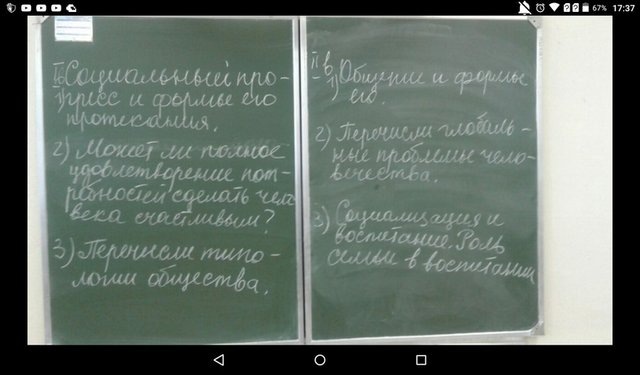 67% 17:37
I в
1) Социальный про-
гресс и формы его
протекания.
2) Может ли полное
удовлетворение пот-
ребностей сделать чело
века счастливым?
3) Перечисли типо-
логии общества.
II в
1) Общение и формы
его.
2) Перечисли глобаль-
ные проблемы чело-
вечества.
3) Социализация и
воспитание. Роль
семьи в воспитании